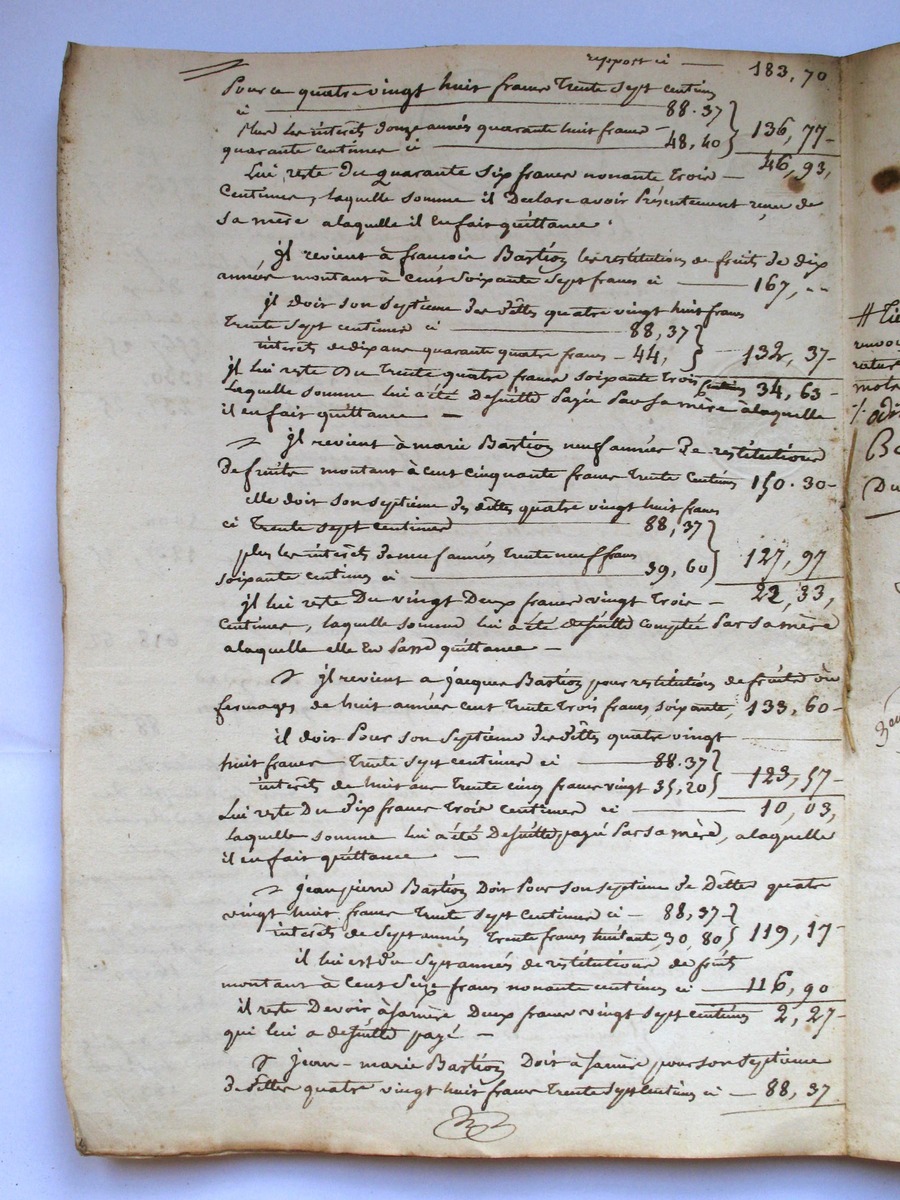 report ci — 183, 70
Pour ce quatre vingt huit francs trente sept centimes
ci — 88. 37
plus les intérets douze années quarante huit francs — 136, 77
quarante centimes ci — 48, 40
46, 93,
Lui reste du quarante six francs nonante trois —
Centimes, laquelle somme il Declare avoir Présentement reçu de
sa mère a laquelle il En fait quittance .
jl revient à francois Bastion les restitutions de fruits de dix
années montant à Cent soixante sept francs ci — 167, --
jl doit son septieme des dettes quatre vingt huit francs
trente sept centimes ci — 88, 37
interets de dix ans quarante quatre francs — 44, 132, 37-
jl Lui reste Du trente quatre francs soixante trois Centimes 34, 63-
Laquelle somme lui a été de suitte Payée Par sa mère à laquelle
il en fait quittance —
jl revient à marie Bastion neuf années De restitutions
De fruits montant à cent cinquante francs trente Centimes 150. 30-
elle doit son septieme des dettes quatre vingt huit francs
ci trente sept centimes — 88, 37
plus les intérets de neuf années trente neuf francs 127, 97
soixante centimes ci — 39, 60
jl lui reste Du vingt Deux francs vingt trois — 22, 33,
Centimes, laquelle somme lui a été de suitte comptée Par sa mère
a laquelle elle En Passe quittance —
jl revient a jacques Bastion pour restitutions de fruits ou
fermages de huit années cent trente trois francs soixante, 133, 60-
il doit Pour son septieme des dettes quatre vingt —
huit francs trente sept centimes ci — 88. 37
interets de huit ans trente cinq francs vingt 35, 20 123, 57-
Lui reste Du dix francs trois centimes ci — 10, 03,
laquelle somme lui a été de suitte payé Par sa mère, a laquelle
il en fait quittance —
jean pierre Bastion Doit Pour son septieme de Dettes quatre
vingt huit francs trente sept Centimes ci — 88, 37-
interets de sept années trente francs huitante, 30, 80 119, 17-
il lui est du sept années de restitutions de fruits
montant à Cent Seize francs nonante centimes ci — 116, 90
il reste Devoir à sa mère Deux francs vingt sept centimes 2, 27-
qui lui a de suitte payé —
jean - marie Bastion Doit à sa mère pour son septieme
de dettes quatre vingt huit francs trente sept Centimes ci — 88, 37
Du